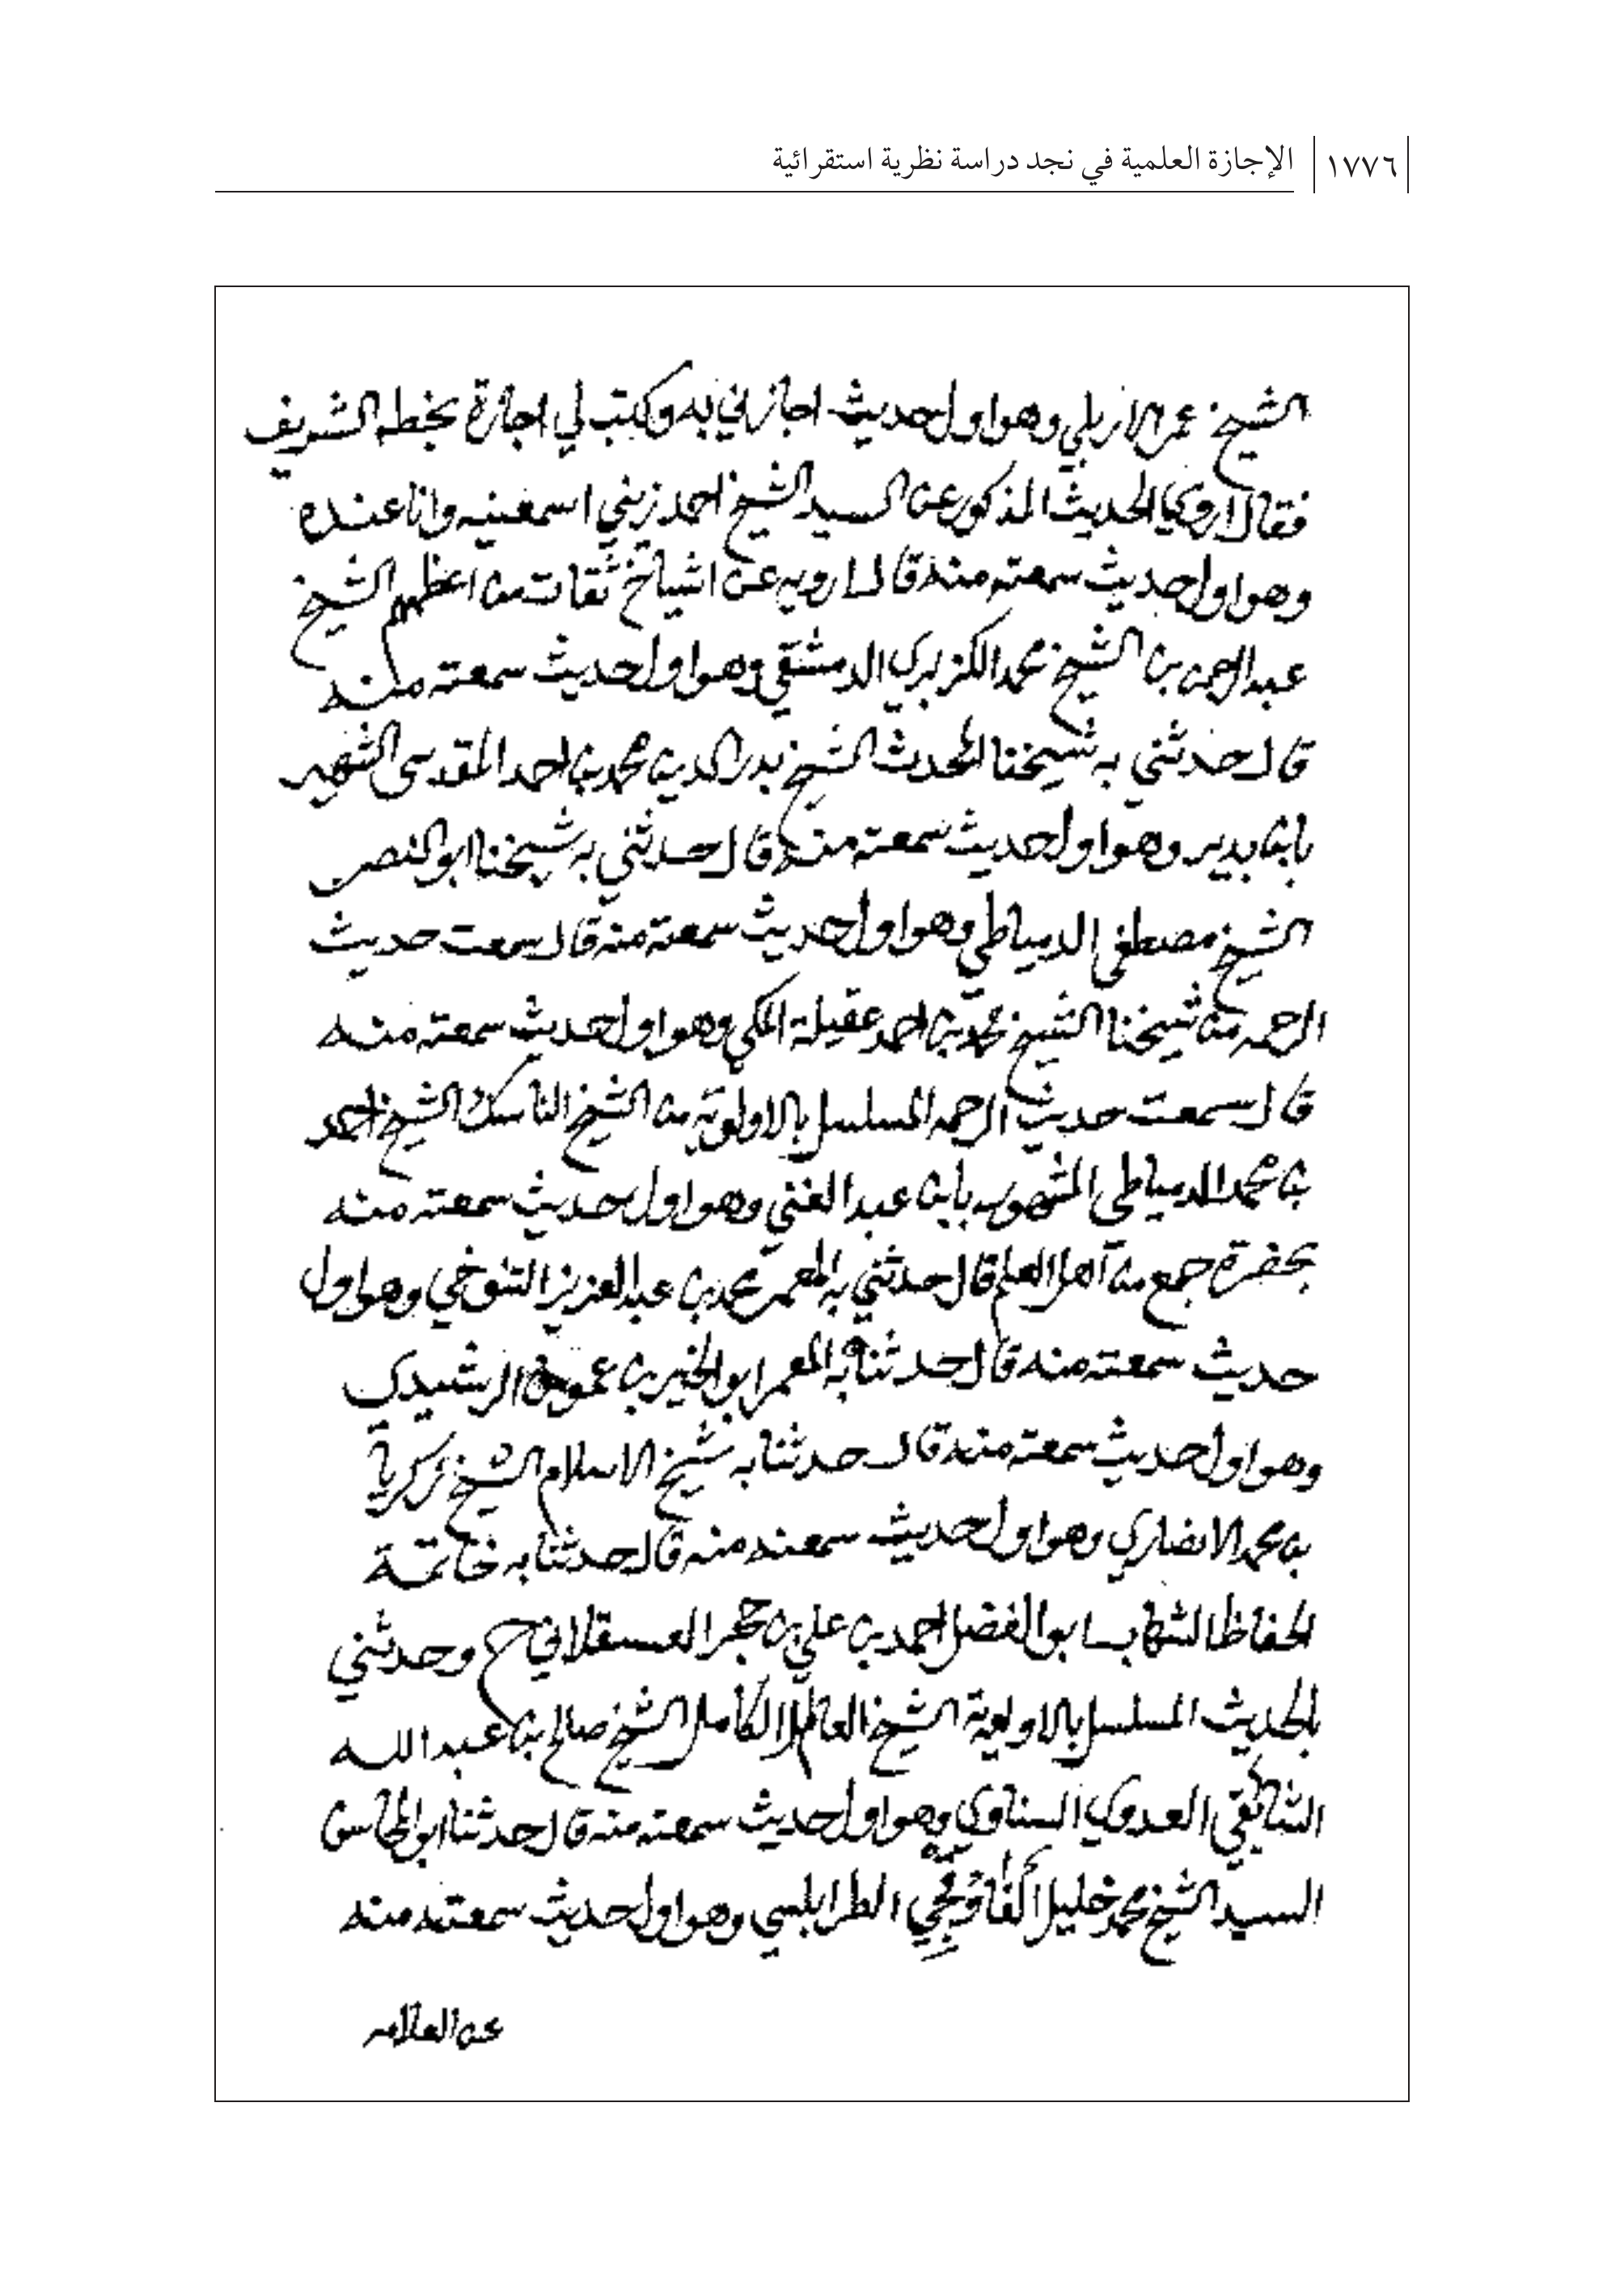 ١٧٧٦ الإجازة العلمية في نجد دراسة نظرية استقرائية
الشيخ عمر الاربلي وهو اول حديث اجازني به وكتب لي اجازة بخطه الشريف
فقال اروي الحديث المذكور عن السيد الشيخ احمد زيني اسمعنيه وانا عنده
وهو اول حديث سمعته منه قال ارويه عن اشياخ ثقات من اعظهم الشيخ
عبد الرحمن بن الشيخ محمد الكزبري الدمشقي وهو اول حديث سمعته منه
قال حدثني به شيخنا المحدث الشيخ بدر الدين محمد بن احمد المقدسي الشهير
بابن بدير وهو اول حديث سمعته منه قال حدثني به شيخنا ابو النصر
الشيخ مصطفى الدمياطي وهو اول حديث سمعته منه قال سمعت حديث
الرحمه من شيخنا الشيخ محمد بن احمد عقيلة المكي وهو اول حديث سمعته منه
قال سمعت حديث الرحمه المسلسل بالاولوية من الشيخ الناسك الشيخ احمد
بن محمد الدمياطي المشهور بابن عبد الغني وهو اول حديث سمعته منه
بحضرة جمع من اهل العلم قال حدثني به المعمر محمد بن عبد العزيز التنوخي وهو اول
حديث سمعته منه قال حدثنا به المعمر ابو الخير بن عموس الرشيدي
وهو اول حديث سمعته منه قال حدثنا به شيخ الاسلام الشيخ زكريا
بن محمد الانصاري وهو اول حديث سمعته منه قال حدثنا به خاتمة
الحفاظ الشهاب ابو الفضل احمد بن علي بن حجر العسقلاني ح وحدثني
بالحديث المسلسل بالاولوية الشيخ العالم الكامل الشيخ صالح بن عبد الله
الشافعي العدوي السناوي وهو اول حديث سمعته منه قال حدثنا ابو المحاسن
السيد الشيخ محمد خليل القاوقجي الطرابلسي وهو اول حديث سمعته منه
عن العلامه